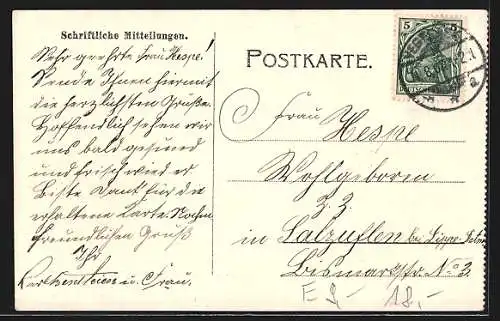 Schriftliche Mitteilungen.
Sehr geehrte Frau Hespe!
Sende Ihnen hiermit
die herzlichsten Grüße.
Hoffendlich sehen wir
uns bald gesund
und frisch wieder
Beste Dank für die
erhaltene Karte. Nochm.
freundlichen Gruß
Ihr
u. Frau.
POSTKARTE.
5
Frau Hespe
Wohlgeboren
z. Z.
in Salzuflen bei Lippe-
Bismarkstr. No 2.
E 9,- 18,-